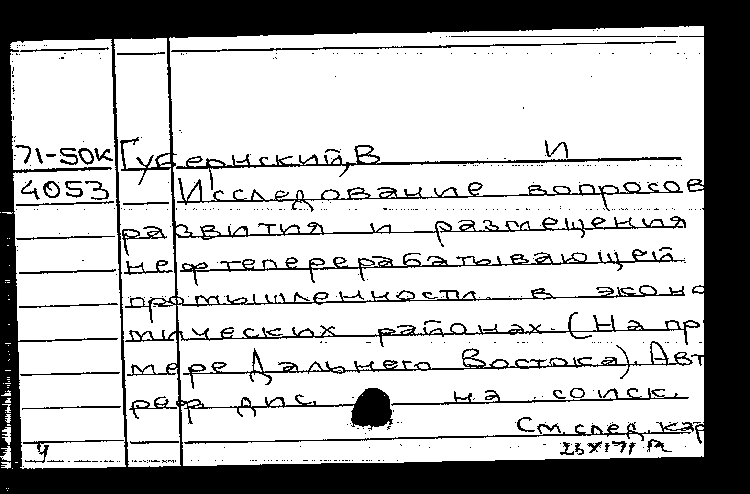 71-50к Губернский, В И
4053 Исследование вопросов
развития и размещения
нефтеперерабатывающей
промышленности в эконо
мических районах. (На при
мере Дальнего Востока). Авт
реф дис. на соиск.
См. след. кар
4